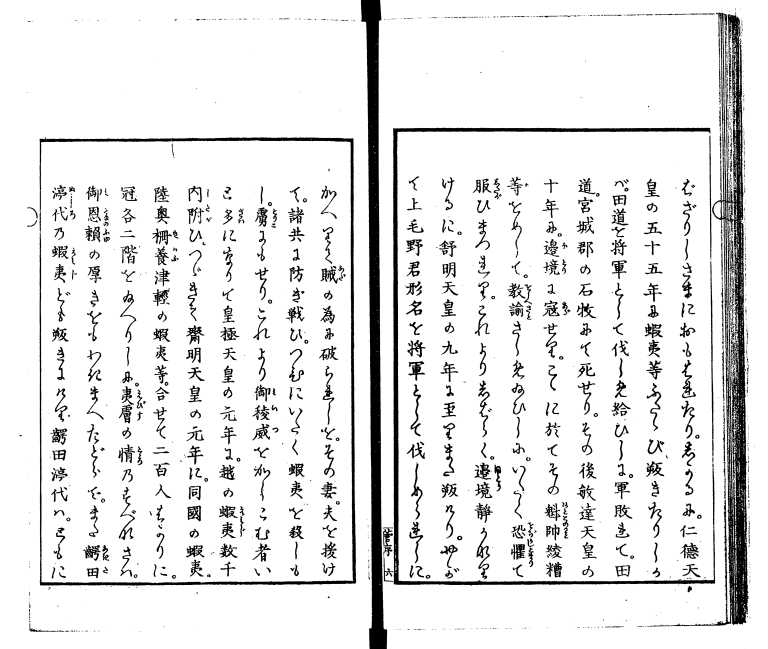 むざりしさまにおもむきたり。しかるに。仁德天
皇の五十五年に蝦夷等ふたゝび叛きたりしか
べ。田道を將軍として伐しめ給ひしに。軍敗れて。田
道宮城郡の石牧にて死せり。その後敏達天皇の
十年に。邊境に寇せり。こゝに於てその魁帥綾糟
等をめして。教諭さしめ給ひしに。いたく恐懼て
服ひまつれり。これよりしばらく。邊境靜かなり
けるに。舒明天皇の九年に至りまた叛けり。やが
て上毛野君形名を將軍として伐しめられしに。
かへりて賊の為に破られしを。その妻。夫を援け
て。諸共に防ぎ戰ひ。つひにいたく蝦夷を殺しも
し。虜にもせり。これより御稜威をかしこむ者い
と多になりて皇極天皇の元年に。越の蝦夷数千
内附ひ。つゞきて齋明天皇の元年に。同國の蝦夷。
陸奥柵養津輕の蝦夷等。合せて二百人ばかりに。
冠各二階をたまへりしに。夷膚の情乃すべれさハ。
御恩賴の厚きをもわきまへたどらず。また齶田
渟代乃蝦夷ども叛きけり。齶田渟代ハ。ともに
菅序 六